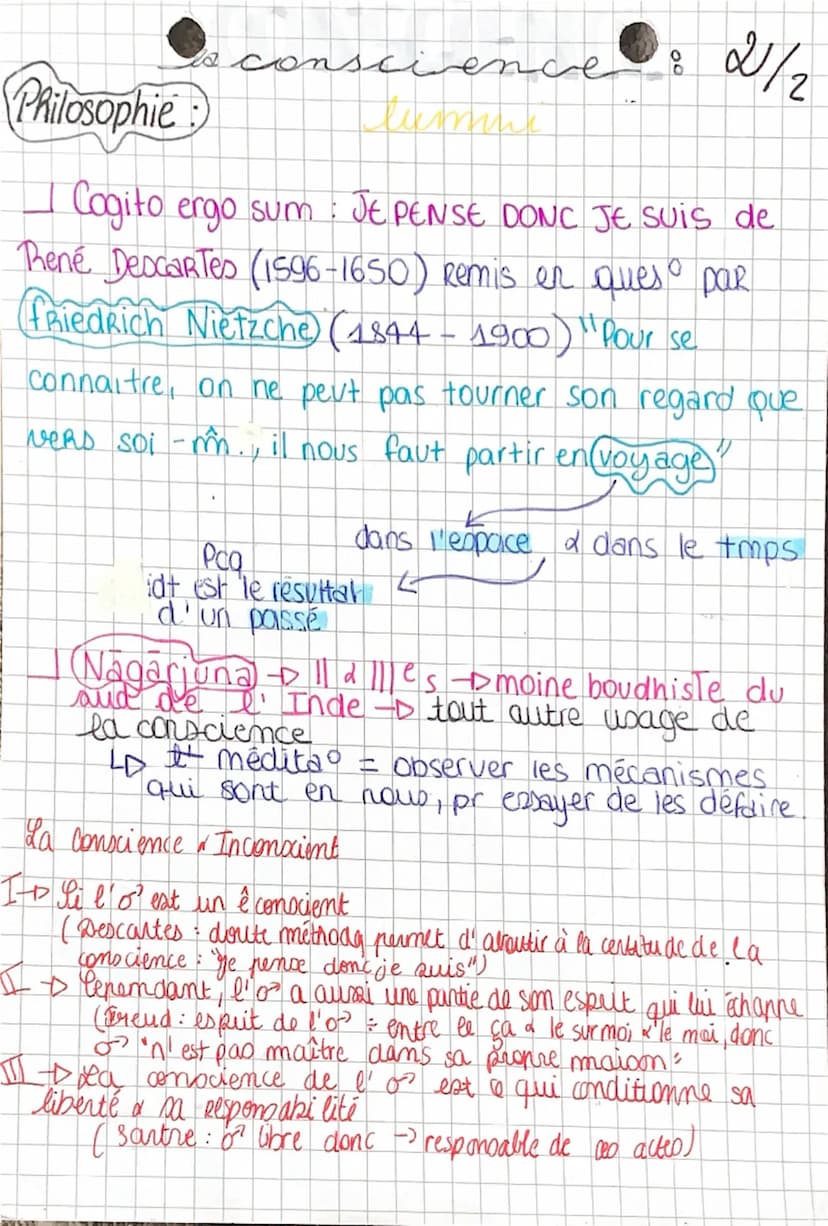 La conscience : 2/2
Philosophie :
lumni
Cogito ergo sum : JE PENSE DONC JE SUIS de
René DESCARTES (1596-1650) Remis en ques° par
FRiedRich Nietzche (1844 - 1900) "Pour se
connaitre, on ne peut pas tourner son regard que
VERS soi - m̂., il nous faut partir en voyage"
dans l'espace & dans le tmps
Pcq
idt est le résultat
d'un passé
Nāgārjuna → II & IIIe s → moine boudhiste du
sud de l'Inde → tout autre usage de
la conscience
↳ tt médita° = observer les mécanismes
qui sont en nous, pr essayer de les défaire.
La Conscience & Inconscient
I → Si l'♂ est un ê conscient
(Descartes : doute méthodq permet d'aboutir à la certitude de la
conscience : "je pense donc je suis")
II → Cependant, l'♂ a aussi une partie de son esprit qui lui échappe
(Freud : esprit de l'♂ = entre le ça & le surmoi & le moi, donc
♂ "n'est pas maître dans sa propre maison"
III → La conscience de l'♂ est ce qui conditionne sa
liberté & sa responsabilité
(Sartre : ♂ libre donc → responsable de ses actes)